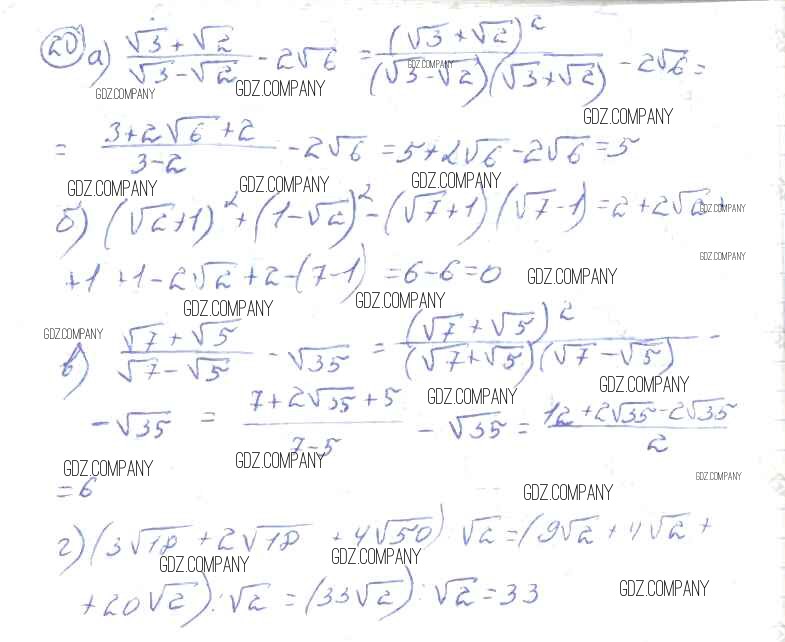 20 а) (√3 + √2)/(√3 − √2) − 2√6 = (√3 + √2)²/((√3 − √2)(√3 + √2)) − 2√6 =
GDZ.COMPANY GDZ.COMPANY GDZ.COMPANY GDZ.COMPANY
= (3 + 2√6 + 2)/(3 − 2) − 2√6 = 5 + 2√6 − 2√6 = 5
GDZ.COMPANY GDZ.COMPANY GDZ.COMPANY
б) (√2 + 1)² + (1 − √2)² − (√7 + 1)(√7 − 1) = 2 + 2√2 +
GDZ.COMPANY
+ 1 + 1 − 2√2 + 2 − (7 − 1) = 6 − 6 = 0
GDZ.COMPANY GDZ.COMPANY GDZ.COMPANY GDZ.COMPANY
в) (√7 + √5)/(√7 − √5) − √35 = (√7 + √5)²/((√7 + √5)(√7 − √5)) −
GDZ.COMPANY GDZ.COMPANY GDZ.COMPANY
− √35 = (7 + 2√35 + 5)/(7 − 5) − √35 = (12 + 2√35 − 2√35)/2
GDZ.COMPANY GDZ.COMPANY GDZ.COMPANY
= 6
GDZ.COMPANY
г) (3√18 + 2√18 + 4√50) : √2 = (9√2 + 4√2 +
GDZ.COMPANY GDZ.COMPANY
+ 20√2) : √2 = (33√2) : √2 = 33
GDZ.COMPANY